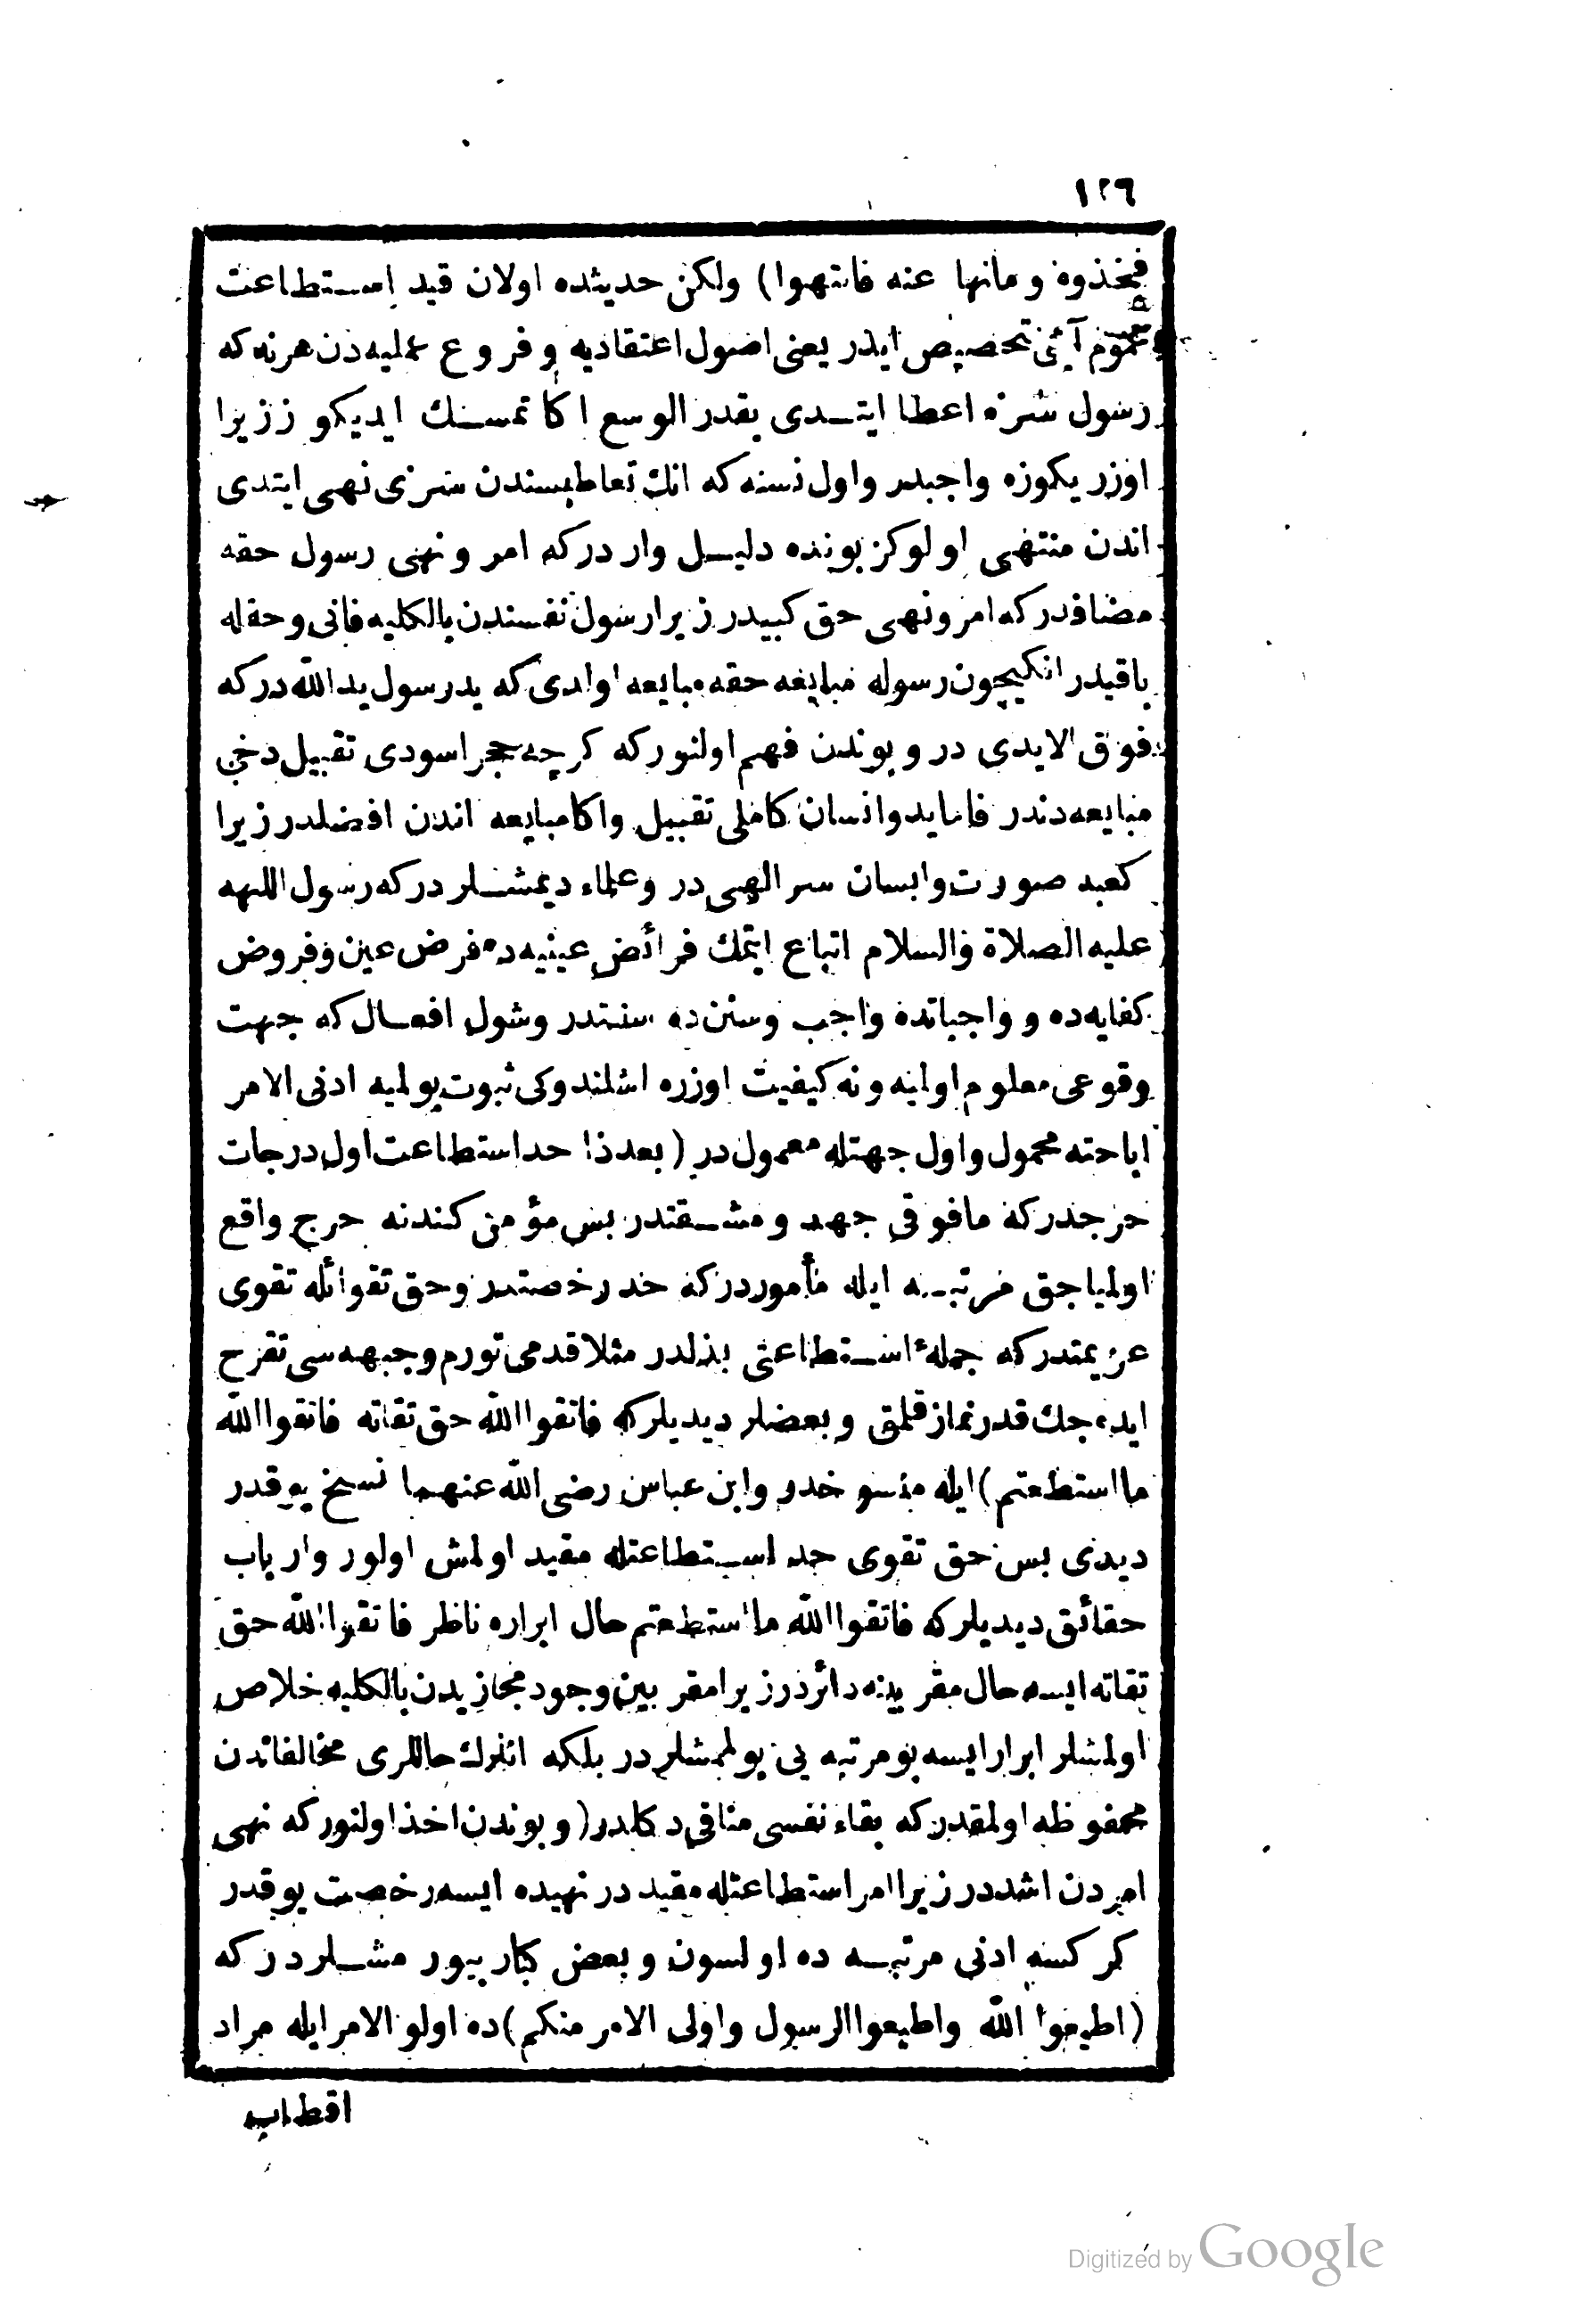 ١٢٦
فخذوه و مانها عنه فانتهوا) ولكن حديثده اولان قيد استطاعت
عموم آيتى تخصيص ايدر يعنى اصول اعتقاديه و فروع عمليه دن هرنه كه
رسول سزه اعطا ايتدى بقدر الوسع اكا تمسك ايديكوز زيرا
اوزريكوزه واجبدر واول نسنه كه انك تعاطيسندن سزى نهى ايتدى
اندن منتهى اولوكز بونده دليل واردركه امر و نهى رسول حقه
مضافدركه امر ونهى حق كبيدر زيرا رسول نفسندن بالكليه فانى و حقله
باقيدر انكيچون رسوله مبايعه حقه مبايعه اولدى كه يد رسول يد الله دركه
فوق الايدى در و بوندن فهم اولنوركه كرچه حجر اسودى تقبيل دخى
مبايعه دندر فاما يد وانسان كاملى تقبيل واكا مبايعه اندن افضلدر زيرا
كعبه صورت وانسان سر الهى در و علماء ديمشلر دركه رسول اللهه
عليه الصلاة والسلام اتباع ايتمك فرائض عينيه ده فرض عين وفروض
كفايه ده و واجباتده واجب وسنن ده سنتدر وشول افعال كه جهت
وقوعى معلوم اولميه ونه كيفيت اوزره اشلندوكى ثبوت بولميه ادنى الامر
اباحته محمول واول جهتله معمول در (بعد ذا حد استطاعت اول درجات
حرجدركه مافوقى جهد و مشقتدر بس مؤمن كندنه حرج واقع
اولمياجق مرتبه ايله مأموردركه حد رخصتدر وحق تقوا ئله تقوى
عزيمتدركه جمله ء استطاعتى بذلدر مثلا قدمى تورم وجبهه سى تقرح
ايده جك قدر نماز قلمق و بعضلر ديديلركه فاتقوا الله حق تقاته فاتقوا الله
ما استطعتم) ايله منسوخدر وابن عباس رضى الله عنهما نسخ يوقدر
ديدى بس حق تقوى حد استطاعتله مقيد اولمش اولور وارباب
حقائق ديديلركه فاتقوا الله ما استطعتم حال ابراره ناظر فاتقوا الله حق
تقاته ايسه حال مقربينه دائردر زيرا مقربين وجود مجازيدن بالكليه خلاص
اولمشلر ابرار ايسه بو مرتبه يى بولممشلر در بلكه انلرك حاللرى مخالفاتدن
محفوظه اولمقدركه بقاء نفسى منافى دكلدر (و بوندن اخذ اولنوركه نهى
امردن اشددر زيرا امر استطاعتله مقيد در نهيده ايسه رخصت يوقدر
كركسه ادنى مرتبه ده اولسون و بعض كبار بيورمشلر دركه
(اطيعوا الله واطيعوا الرسول واولى الامر منكم) ده اولو الامر ايله مراد
اقطاب
Digitized by Google